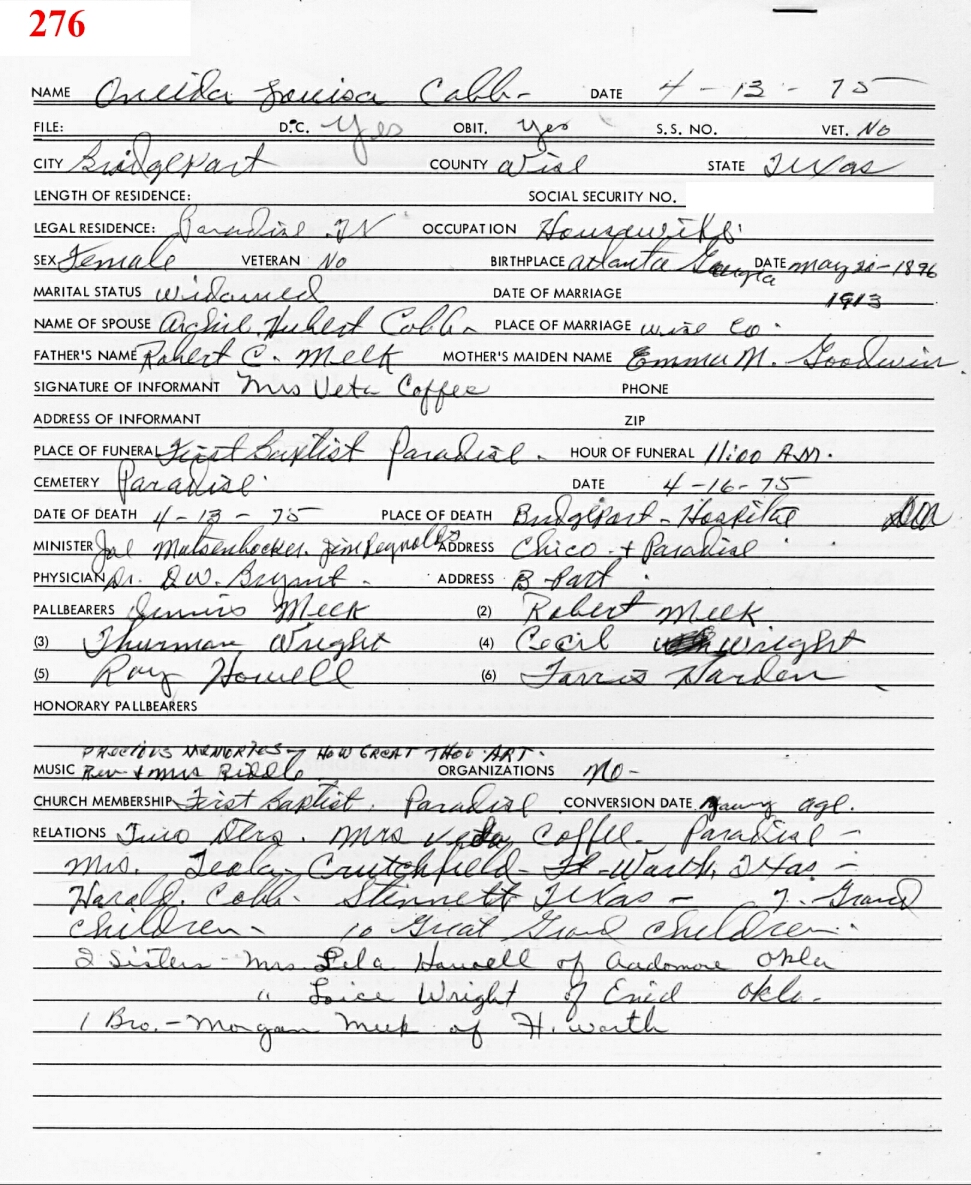 276
NAME Oneida Louisa Cobb - DATE 4 - 13 - 75
FILE: D.C. Yes OBIT. Yes S.S. NO. VET. No
CITY Bridgeport COUNTY Wise STATE Texas
LENGTH OF RESIDENCE: SOCIAL SECURITY NO.
LEGAL RESIDENCE: Paradise TX OCCUPATION Housewife
SEX Female VETERAN No BIRTHPLACE Atlanta Georgia DATE May 20-1896
MARITAL STATUS widowed DATE OF MARRIAGE 1913
NAME OF SPOUSE Archie Hubert Cobb PLACE OF MARRIAGE Wise Co.
FATHER'S NAME Robert C. Meek MOTHER'S MAIDEN NAME Emma M. Goodwin
SIGNATURE OF INFORMANT Mrs Veta Coffee PHONE
ADDRESS OF INFORMANT ZIP
PLACE OF FUNERAL First Baptist Paradise HOUR OF FUNERAL 11:00 A.M.
CEMETERY Paradise DATE 4-16-75
DATE OF DEATH 4-13-75 PLACE OF DEATH Bridgeport - Hospital DOA
MINISTER Joe Jim Reynolds ADDRESS Chico + Paradise
PHYSICIAN Dr. D.W. Bryant - ADDRESS B-Port
PALLBEARERS Meek (2) Robert Meek
(3) Thurman Wright (4) Cecil Wright
(5) Roy Howell (6) Farris Harden
HONORARY PALLBEARERS
PRECIOUS MEMORIES - HOW GREAT THOU ART.
MUSIC Rev + Mrs Riddle ORGANIZATIONS No -
CHURCH MEMBERSHIP First Baptist. Paradise CONVERSION DATE Young age.
RELATIONS Two Dtrs. Mrs Veta Coffee - Paradise -
Mrs. Leola Crutchfield - Ft-Worth, Texas -
Harold Cobb - Stinnett Texas - 7 - Grand
Children - 10 Great Grand Children.
2 Sisters - Mrs. Lela Howell of Aadomore Okla
" Loice Wright of Enid Okla.
1 Bro. - Morgan Meek of Ft. Worth